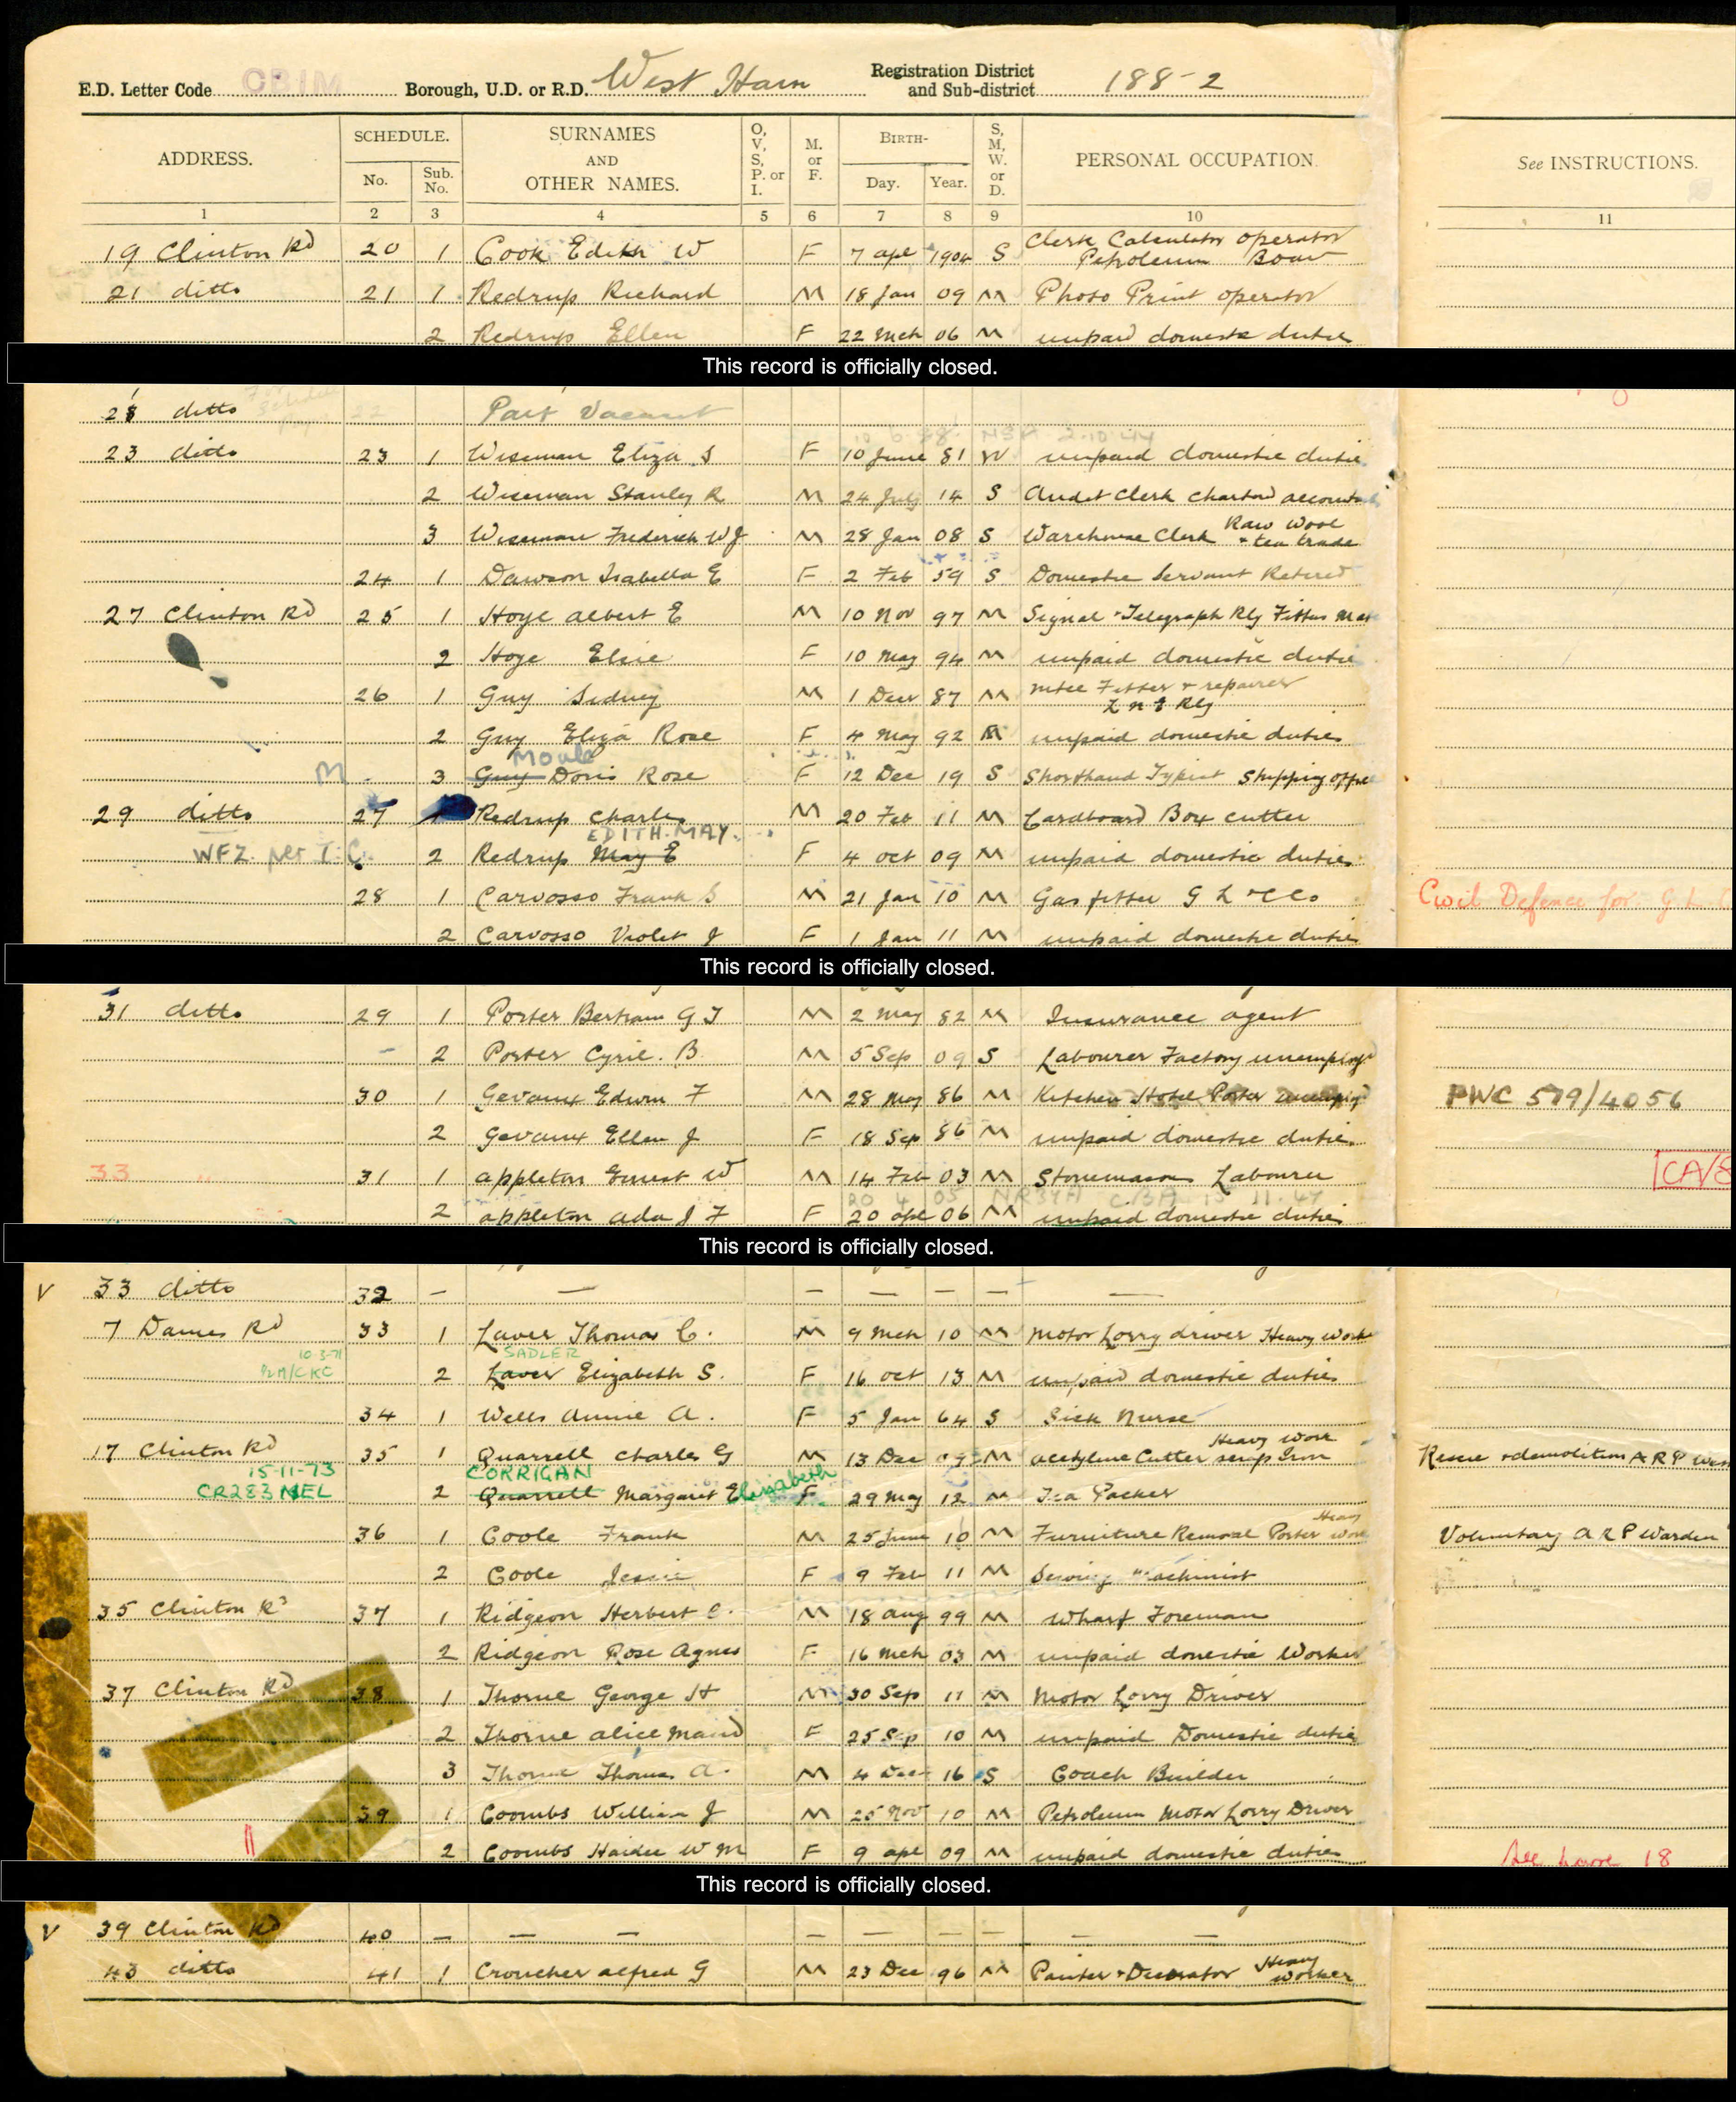 E.D. Letter Code CBIM Borough, U.D. or R.D. West Ham Registration District and Sub-district 188-2
ADDRESS. SCHEDULE. No. Sub. No. SURNAMES AND OTHER NAMES. O, V, S, P. or I. M. or F. BIRTH- Day. Year. S, M, W. or D. PERSONAL OCCUPATION. See INSTRUCTIONS.
1 2 3 4 5 6 7 8 9 10 11
19 Clinton Rd 20 1 Cook Edith W F 7 apl 1904 S Clerk Calculator operator Petroleum Board
21 ditto 21 1 Redrup Richard M 18 Jan 09 M Photo Print operator
2 Redrup Ellen F 22 Mch 06 M unpaid domestic duties
This record is officially closed.
21 ditto 22 Part Vacant
10 6 NSH 2.10.44
23 ditto 23 1 Wiseman Eliza S F 10 June 81 W unpaid domestic dutie
2 Wiseman Stanley R M 24 July 14 S Audit Clerk charterd account
3 Wiseman Frederick W J M 28 Jan 08 S Warehouse Clerk Raw Wool + tea trade
24 1 Dawson Isabella E F 2 Feb 59 S Domestic Servant Retired
27 Clinton Rd 25 1 Hoye albert E M 10 Nov 97 M Signal + Telegraph Rly Fitters Mate
2 Hoye Elsie F 10 May 94 M unpaid domestic dutie
26 1 Guy Sidney M 1 Decr 87 M Mtce Fitter + repairer L N E Rly
2 Guy Eliza Rose F 4 May 92 M unpaid domestic duties
Moule
M 3 Guy Doris Rose F 12 Dec 19 S Shorthand Typist Shipping office
29 ditto 27 1 Redrup Charles M 20 Feb 11 M Cardboard Box cutter
EDITH. MAY.
WFZ. per T.C. 2 Redrup May E F 4 oct 09 M unpaid domestic duties
28 1 Carvosso Frank S M 21 Jan 10 M Gas fitter G L + C Co Civil Defence for G L
2 Carvosso Violet J F 1 Jan 11 M unpaid domestic duties
This record is officially closed.
31 ditto 29 1 Porter Bertram G T M 2 May 82 M Insurance agent
2 Porter Cyril. B. M 5 Sep 09 S Labourer Factory unemployd
30 1 Gevaux Edwin F M 28 May 86 M Kitchen Hotel Porter PWC 579/4056
2 Gevaux Ellen J F 18 Sep 86 M unpaid domestic duties
33 " 31 1 appleton Ernest W M 14 Feb 03 M Stonemasons Labourer CA/S
20 4 05 NR37A CBA 15 11.47
2 appleton ada J F F 20 apl 06 M unpaid domestic duties
This record is officially closed.
V 33 ditto 32 - — — — — — —
7 Dames Rd 33 1 Laver Thomas C. M 9 Mch 10 M Motor Lorry driver Heavy Work
10-3-71 SADLER
2 Laver Elizabeth S. F 16 oct 13 M unpaid domestic duties
34 1 Wells Annie A. F 5 Jan 64 S Sick Nurse
17 Clinton Rd 35 1 Quarrell Charles G M 13 Dec 09 M acetylene Cutter scrap Iron Heavy Work Rescue + demolition A R P West
15-11-73 CORRIGAN
CR283 NEL 2 Quarrell Margaret Elizabeth F 29 May 12 M Tea Packer
36 1 Coole Frank M 25 June 10 M Furniture Removal Porter Heavy work Voluntary A R P Warden
2 Coole Jessie F 9 Feb 11 M Sewing Machinist
35 Clinton Rd 37 1 Ridgeon Herbert C. M 18 aug 99 M Wharf Foreman
2 Ridgeon Rose Agnes F 16 Mch 03 M unpaid domestic Worker
37 Clinton Rd 38 1 Thorne George H M 30 Sep 11 M Motor Lorry Driver
2 Thorne alice Maud F 25 Sep 10 M unpaid Domestic dutie
3 Thorne Thomas A. M 4 Dec 16 S Coach Builder
39 1 Coombs William J M 25 Nov 10 M Petroleum Motor Lorry Driver
2 Coombs Haidee W M F 9 apl 09 M unpaid domestic duties See page 18
This record is officially closed.
V 39 Clinton Rd 40 - — — — — — — — —
43 ditto 41 1 Croucher alfred G M 23 Dec 96 M Painter + Decorator Heavy worker